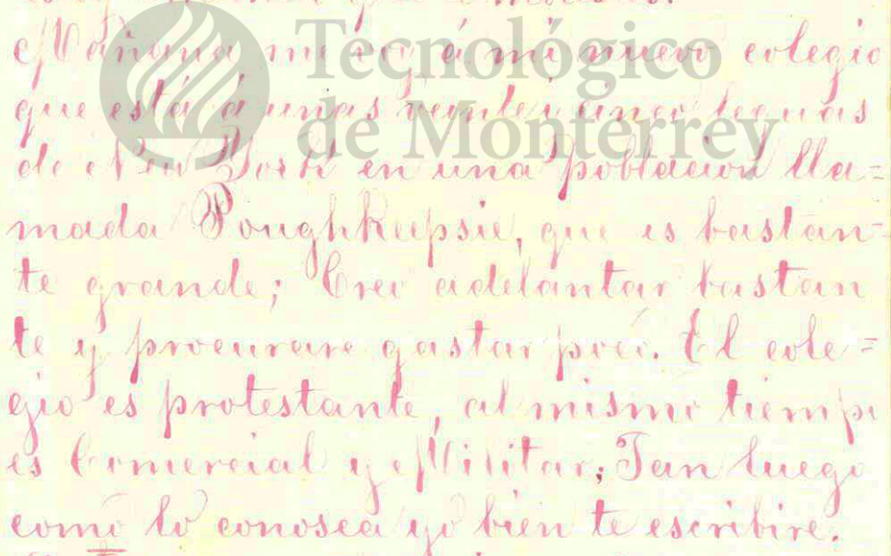 Mañana me voy á mi nuevo colegio
que está á unas veinte y cinco leguas
de New York en una poblacion lla=
mada Poughkeepsie, que es bastan=
te grande; Creo adelantar bastan
te y procurare gastar poco. El cole=
gio es protestante, al mismo tiempo
es Comercial y Militar; Tan luego
como lo conosca yo bien te escribire.
Tecnológico
de Monterrey